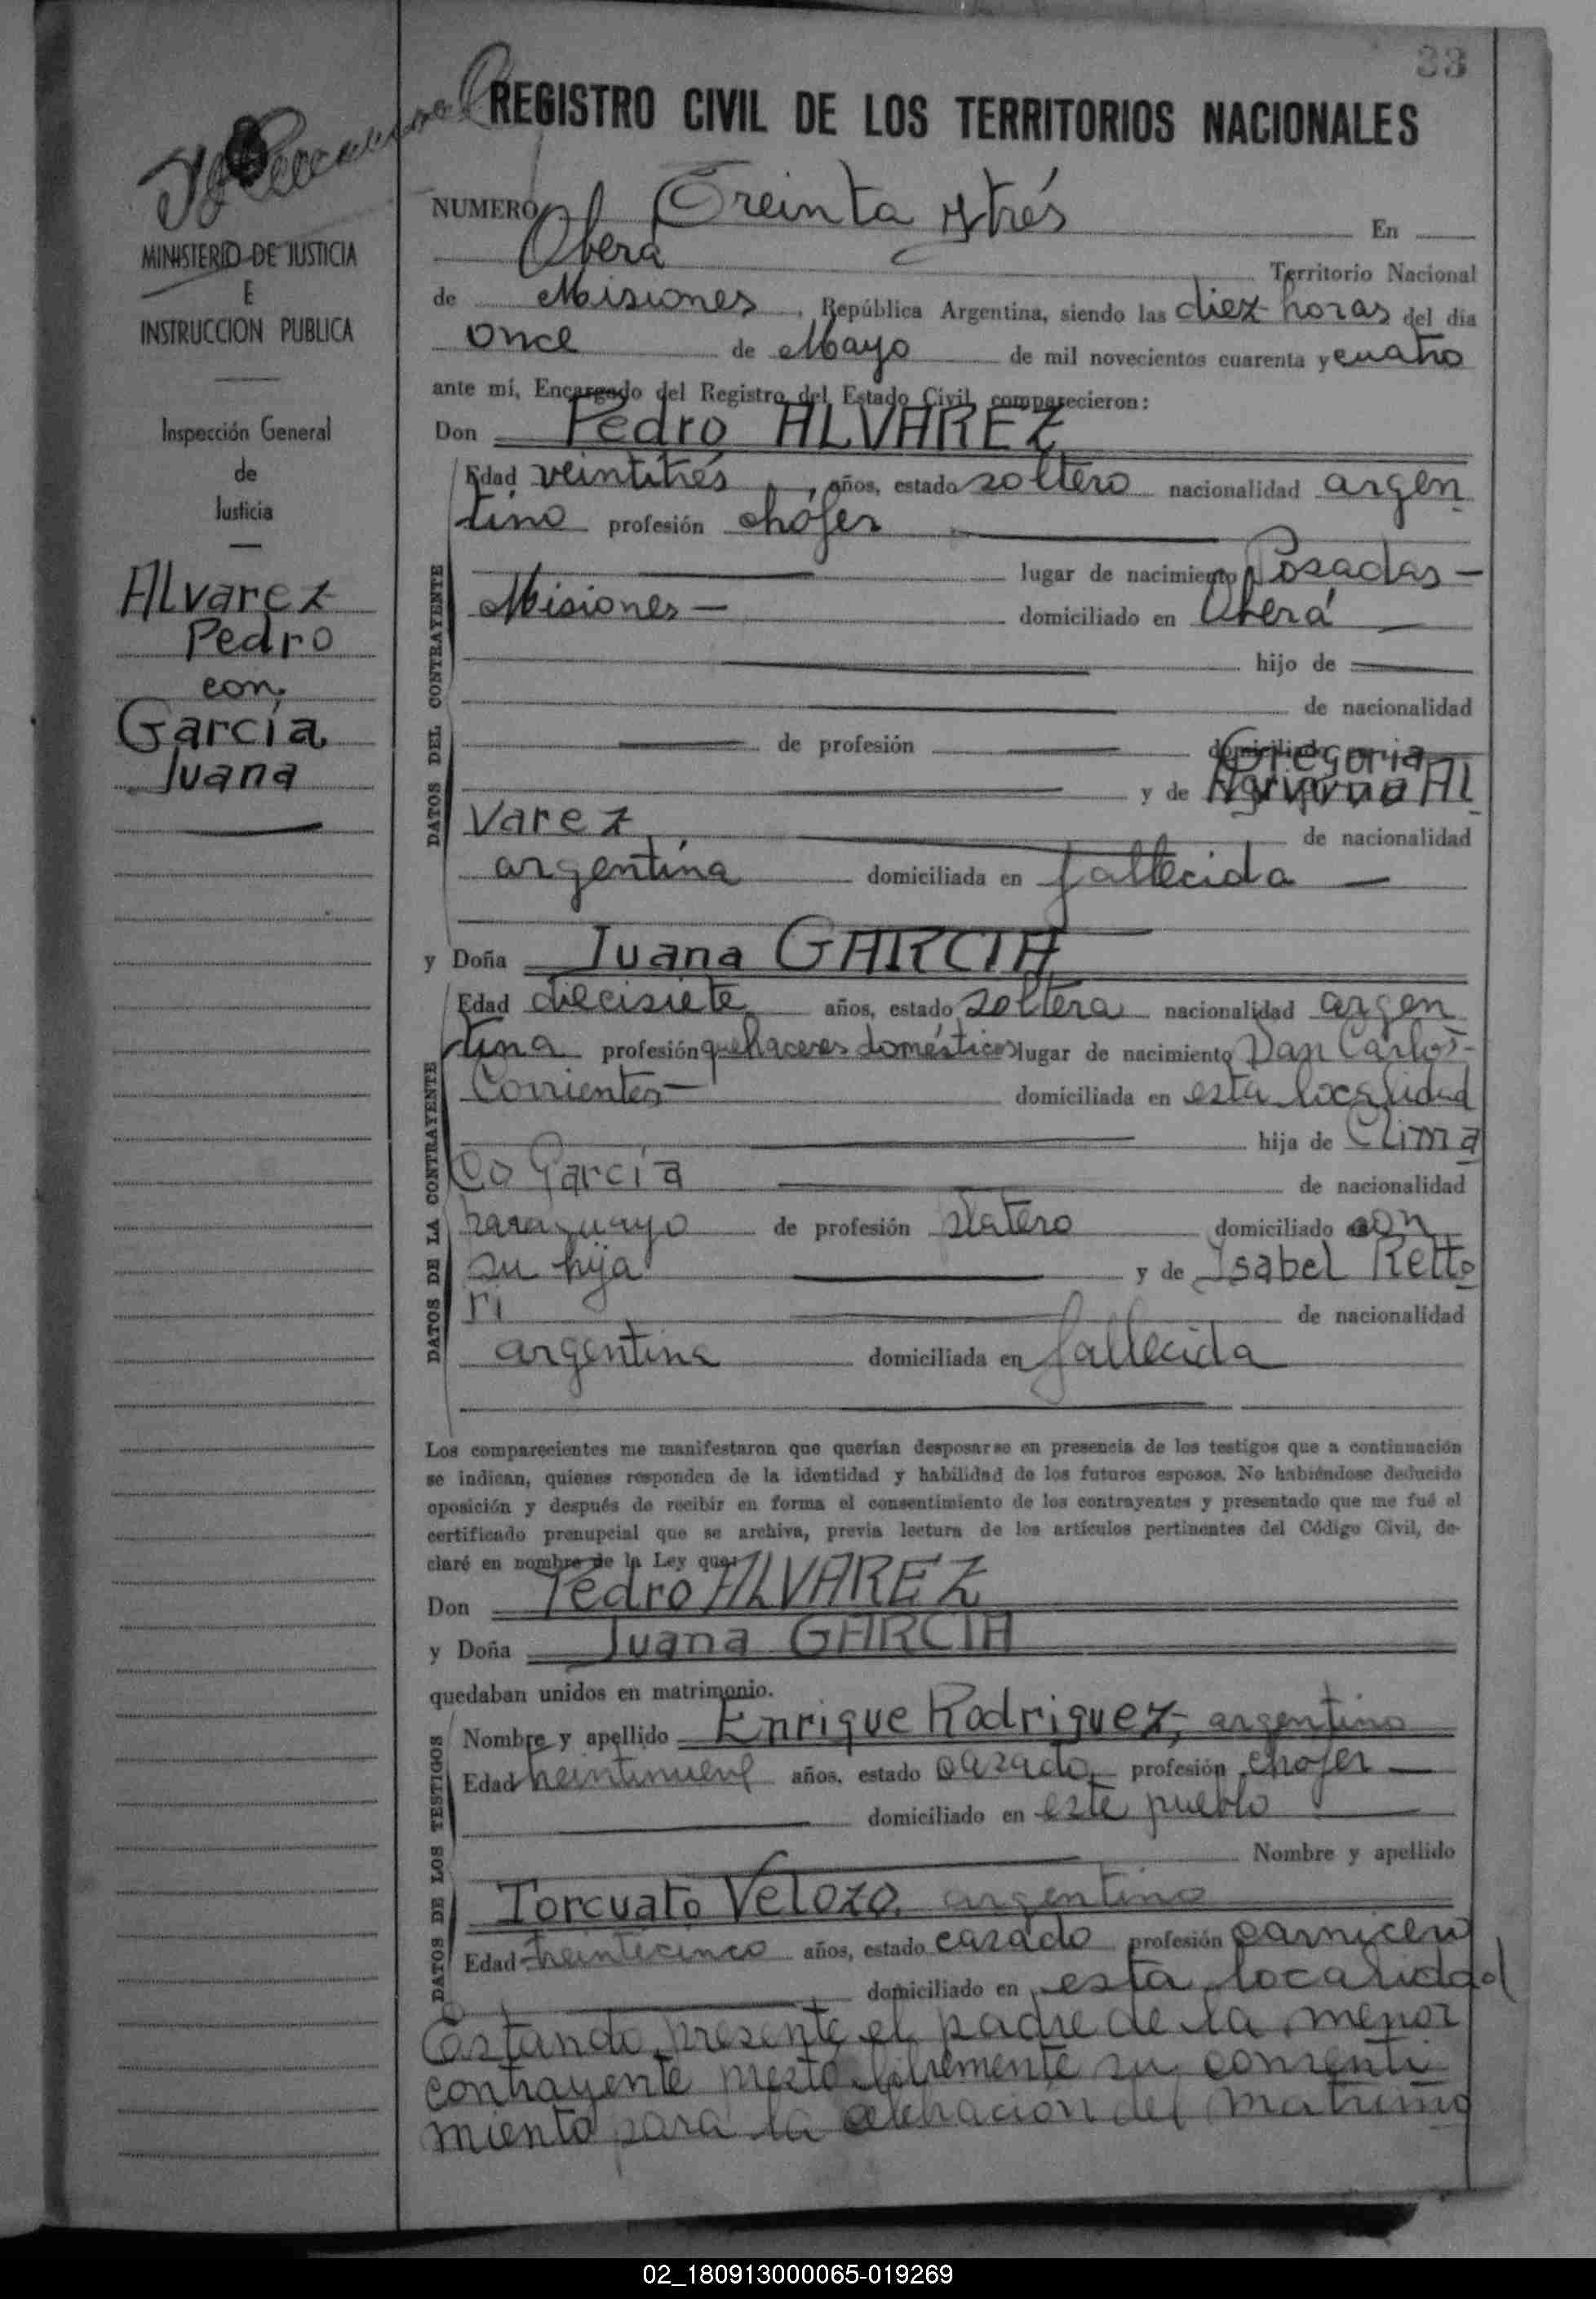 33
REGISTRO CIVIL DE LOS TERRITORIOS NACIONALES
MINISTERIO DE JUSTICIA
E
INSTRUCCION PUBLICA
Inspección General
de
Justicia
Alvarez
Pedro
con
García
Juana
NUMERO Treinta y trés En
Oberá Territorio Nacional
de Misiones, República Argentina, siendo las diez horas del día
once de Mayo de mil novecientos cuarenta y cuatro
ante mí, Encargado del Registro del Estado Civil, comparecieron:
Don Pedro ALVAREZ
DATOS DEL CONTRAYENTE
Edad veintitrés, años, estado soltero nacionalidad argen
tino profesión chófer
lugar de nacimiento Posadas -
Misiones - domiciliado en Oberá
hijo de
de nacionalidad
de profesión domiciliado
Gregoria
y de Al
varez de nacionalidad
argentina domiciliada en fallecida
y Doña Juana GARCIA
DATOS DE LA CONTRAYENTE
Edad diecisiete años, estado soltera nacionalidad argen
tina profesión quehaceres domésticos lugar de nacimiento San Carlos -
Corrientes - domiciliada en esta localidad
hija de Clima
co García de nacionalidad
paraguayo de profesión platero domiciliado con
su hija y de Isabel Retto
ri de nacionalidad
argentina domiciliada en fallecida
Los comparecientes me manifestaron que querían desposarse en presencia de los testigos que a continuación
se indican, quienes responden de la identidad y habilidad de los futuros esposos. No habiéndose deducido
oposición y después de recibir en forma el consentimiento de los contrayentes y presentado que me fué el
certificado prenupcial que se archiva, previa lectura de los artículos pertinentes del Código Civil, de-
claré en nombre de la Ley que:
Don Pedro ALVAREZ
y Doña Juana GARCIA
quedaban unidos en matrimonio.
DATOS DE LOS TESTIGOS
Nombre y apellido Enrique Rodriguez, argentino
Edad treintinueve años, estado casado, profesión chofer
domiciliado en este pueblo
Nombre y apellido
Torcuato Velozo, argentino
Edad treintecinco años, estado casado profesión carnicero
domiciliado en esta localidad
Estando presente el padre de la menor
contrayente prestó libremente su consenti
miento para la celebración del matrimo
02_180913000065-019269